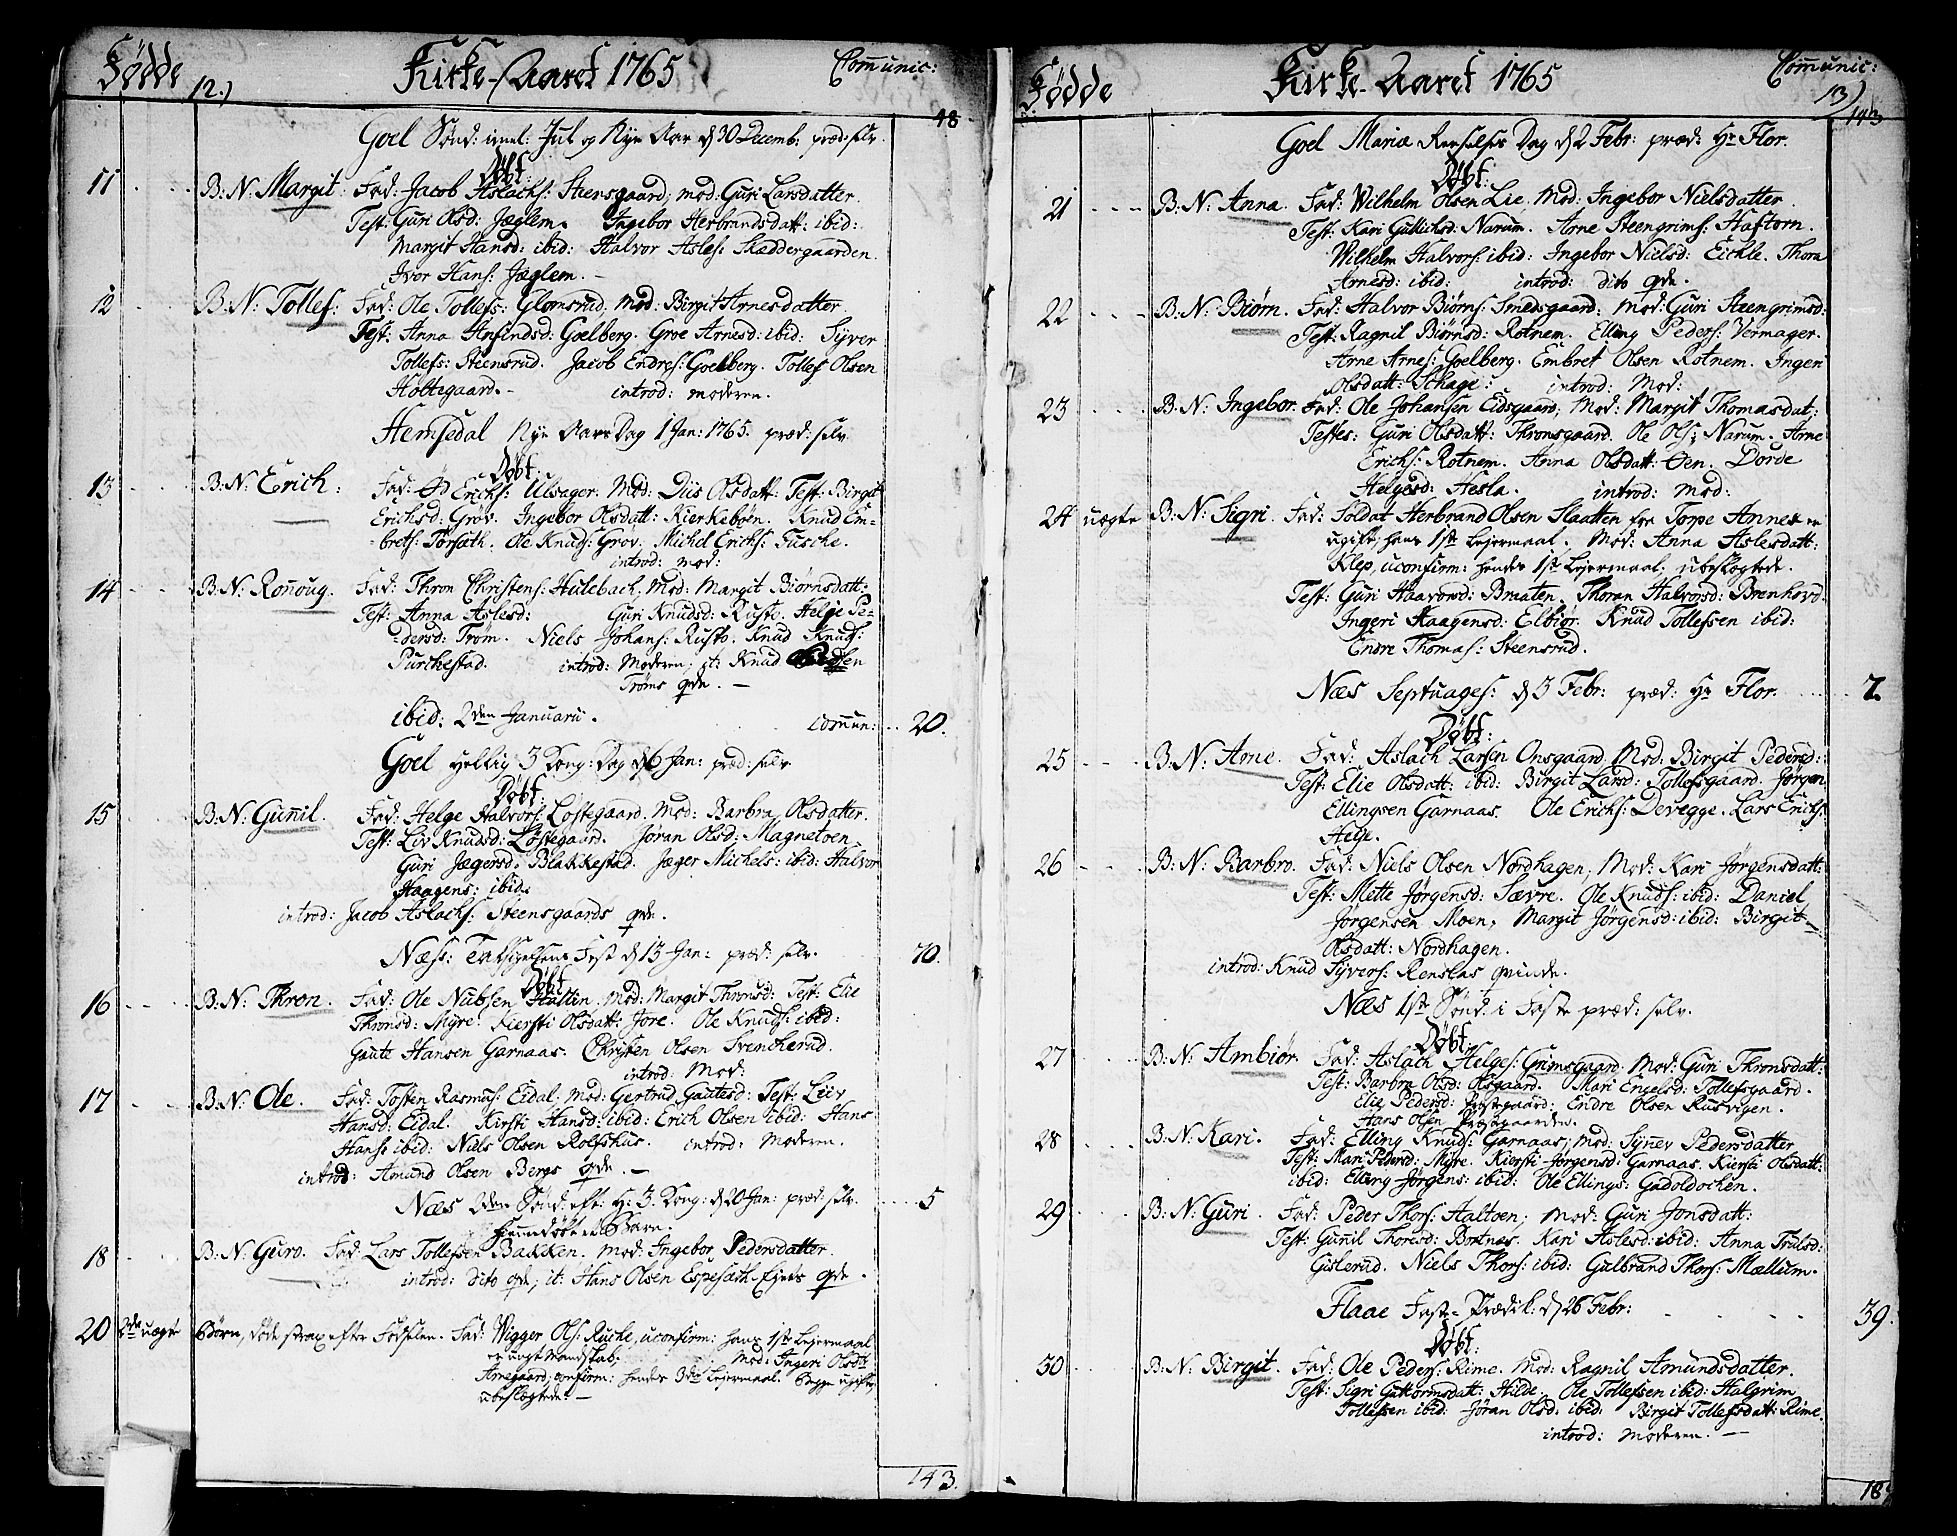 Fødde 12.) Kirke-Aaret 1765 Communic:
48
Goel Sønd: imel: Jul og Nye Aar d 30 Decemb: præd: selv.
Døbt:
11 B: N: Margit. Fad: Jacob Aslachs: Steensgaard; mod: Guri Larsdatter.
Test: Guri Olsd: Jæglem. Ingebor Herbrandsdatt: ibid:
Margit Hansd: ibid: Halvor Asles: Skaddergaarden.
Iver Hans: Jæglem. —
12 B: N: Tollef: Fad: Ole Tollefs: Glomsrud. Mod: Birgit Arnesdatter
Test: Anna Anfindsd: Goelberg. Groe Arnesd: ibid: Syver
Tollefs: Steensrud. Jacob Endres: Goelberg. Tollef Olsen
Holtegaard. - introd: moderen.
Hemsedal Nye Aars Dag 1 Jan: 1765. præd: selv
Døbt:
13 B: N: Erich: Fad: Erichs: Ulsager. Mod: Diis Olsdatt: Test: Birgit
Erichsd: Grøv. Ingebor Olsdatt: Kierkebøen. Knud Em-
brets: Torsæth. Ole Knuds: Grov. Michel Erichs: Fusche.
introd: mod:
14 B: N: Roñoug. Fad: Thron Christens: Hulebach, Mod: Margit Biørnsdatt:
Test: Anna Aslesd: Guri Knudsd: Ruste. Helge Pe-
dersd: Trøm. Niels Johans: Rusto. Knud Knuds:
Purchestad. introd: Moderen; it: Knud
Trøms qde. —
ibid: 2den Januarii. commun: 20.
Goel Hellig 3 Kong: Dag d 6 Jan: præd: selv
Døbt:
15 B: N: Guñil. Fad: Helge Halvors: Løstegaard. Mod: Barbra Olsdatter.
Test: Liv Knudsd: Løstegaard. Jøran Olsd: Magnetoen
Guri Jægersd: Blakkestad. Jæger Michels: ibid: Halvor
Haagens: ibid.
introd: Jacob Aslachs: Steensgaards qde.
Næss: Taksigelsens Fest d 13 Jan: præd: selv. 70.
Døbt
16 B: N: Thron. Fad: Ole Nubsen Haltin. Mod: Margit Thronsd: Test: Elie
Thronsd: Myre. Kiersti Olsdatt: Jore. Ole Knuds: ibid:
Gaute Hansen Garnaas. Christen Olsen Svencherud.
introd: Mod:
17 B: N: Ole. Fad: Tosten Rasmus: Eidal. Mod: Gertrud Gautesd: Test: Leiv
Hansd: Eidal. Kirsti Hansd: ibid: Erich Olsen ibid: Hans
Hans: ibid: Niels Olsen Rolfshus. introd: Moderen.
introd: Amund Olsen Bergs qde. —
Næs 2den Sønd: eft: H: 3. Kong: d 20 Jan: præd: selv. 5
Hiemdøbt Barn.
18 B: N: Guro. Fad: Lars Tollefsen Bakken. Mod: Ingebor Pedersdatter.
introd: dito qde; it: Hans Olsen Espesæth Eiets qde.
20 2de uægte Børn, døde strax efter Fødselen. Fad: Wigger Ols: Ruche, uconfirm: hans 1ste Lejermaal
er ungt Mandskab; Mod: Ingeri Olsdtt
Arnegaard, confirm: hendes 3die Lejermaal. Begge ugifte,
ubeslægtede. —
143.
Fødde Kirke-Aaret 1765 Communic: 13)
143
Goel Mariæ Renselses Dag d 2 Febr: præd: Hr Flor.
Døbt:
21 B: N: Anna. Fad: Wilhelm Olsen Lie. Mod: Ingebor Nielsdatter.
Test: Kari Gullichsd: Narum. Arne Steengrims: Haftorn.
Wilhelm Halvors: ibid: Ingebor Nielsd: Eickle. Thora
Arnesd: ibid: introd: dito qde.
22 B: N: Biørn. Fad: Halvor Biørns: Smedsgaard. Mod: Guri Steengrimsd:
Test: Ragnil Biørnsd: Rotnem. Elling Peders: Vermager.
Arne Arnes: Goelberg. Embret Olsen Rotnem. Inger
Olsdatt: Schage: introd: Mod:
23 B: N: Ingebor. Fad: Ole Johansen Eidsgaard; Mod: Margit Thomasdat:
Testes: Guri Olsdatt: Thronsgaard. Ole Ols: Narum. Arne
Erichs: Rotnem. Anna Olsdatt: Øen. Dorde
Helgesd: Hesla. introd: Mod:
24 uægte B: N: Sigri. Fad: Soldat Herbrand Olsen Slaatten fra Torpe Annex er
ugift, hans 1ste Lejermaal. Mod: Anna Aslesdatt:
Klep, uconfirm: hendes 1ste Lejermaal; ubeslægtede.
Test: Guri Haavorsd: Braaten. Thoran Halvorsd: Brenhovd.
Ingeri Haagensd: Elbiør. Knud Tollefsen ibid:
Endre Thomas: Steensrud.
Næs Septuages: d 3 Febr: præd: Hr Flor. 7
Døbt:
25 B: N: Arne. Fad: Aslach Larsen Onsgaard. Mod: Birgit Pedersd:
Test: Elie Olsdatt: ibid: Birgit Larsd: Tollefsgaard. Jørgen
Ellingsen Garnaas. Ole Erichs: Devegge. Lars Erichs:
Helje.
26 B: N: Barbro. Fad: Niels Olsen Nordhagen, Mod: Kari Jørgensdatt:
Test: Mette Jørgensd: Sævre. Ole Knuds: ibid: Daniel
Jørgensen Moen, Margit Jørgensd: ibid: Birgit
Olsdatt: Nordhagen.
introd: Knud Syvers: Renslas Qvinde.
Næs 1ste Sønd: i Faste præd: selv.
Døbt
27 B: N: Ambiør. Fad: Aslach Helges: Grimsgaard. Mod: Guri Thronsdatt:
Test: Barbra Olsd: Olsgaard. Mari Engelsd: Tollefsgaard.
Elie Pedersd: Endre Olsen Rusvigen.
Hans Olsen Præstegaarden.
28 B: N: Kari. Fad: Elling Knuds: Garnaas; Mod: Synev Pedersdatter
Test: Mari Pedersd: Myre. Kiersti Jørgensd: Garnaas. Kiersti Olsdatt:
ibid: Elling Jørgens: ibid: Ole Ellings: Gadoldocken.
29 B: N: Guri. Fad: Peder Thors: Haltoen; Mod: Guri Jonsdatt:
Test: Guñil Thoresd: Bortnæs. Kari Aslesd: ibid: Anna Trulsd:
Gislerud. Niels Thors: ibid: Gulbrand Thors: Mællum.
Flaae Faste-Prædik: d 26 Febr: 39.
Døbt:
30 B: N: Birgit. Fad: Ole Peders: Rime. Mod: Ragnil Amundsdatter.
Test: Sigri Guttormsdatt: Hilde. Ole Tollefsen ibid: Halgrim
Tollefsen ibid: Jøran Olsd: ibid: Birgit Tollefsdatt: Rime.
introd: Moderen. —